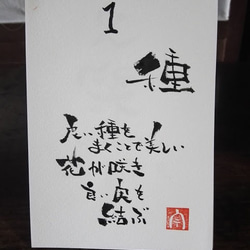 1
種
良い種を
まくことで美しい
花が咲き
良い実を
結ぶ